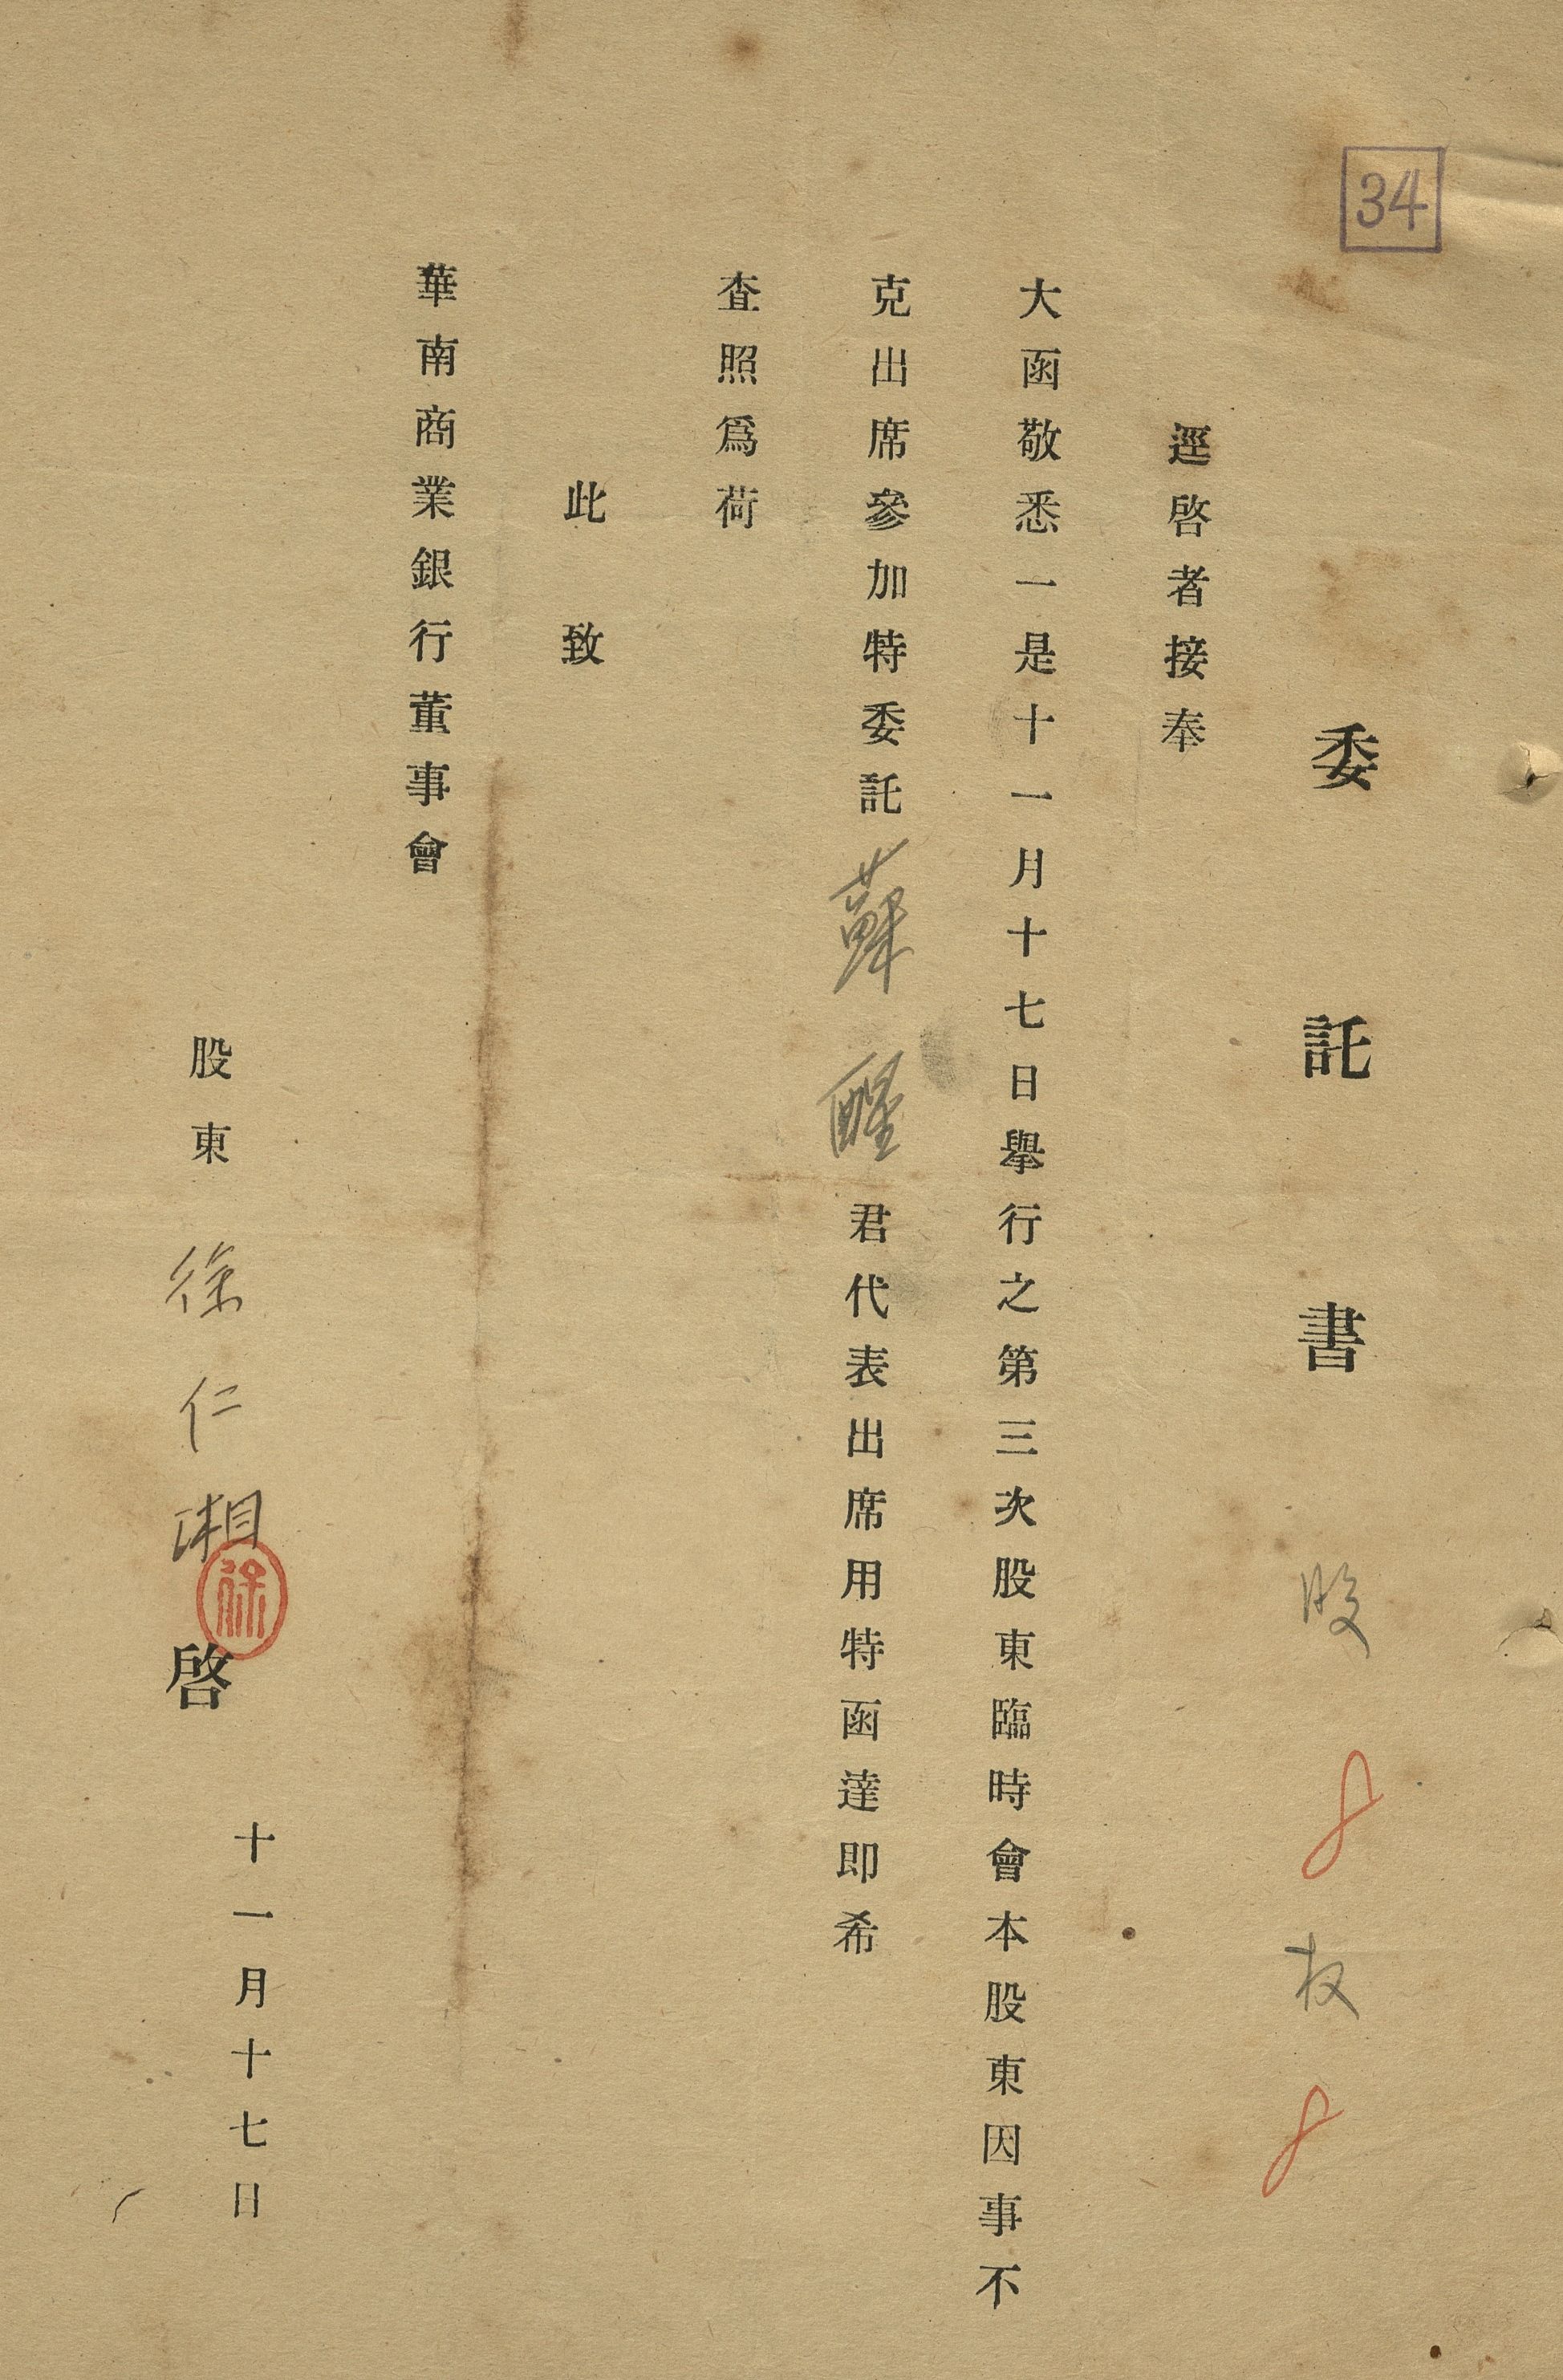 34
委託書 股 8 权 8
逕啓者接奉
大函敬悉一是十一月十七日舉行之第三次股東臨時會本股東因事不
克出席參加特委託蘇醒君代表出席用特函達即希
査照爲荷
此致
華南商業銀行董事會
股東 徐仁湘 徐 啓
十一月十七日